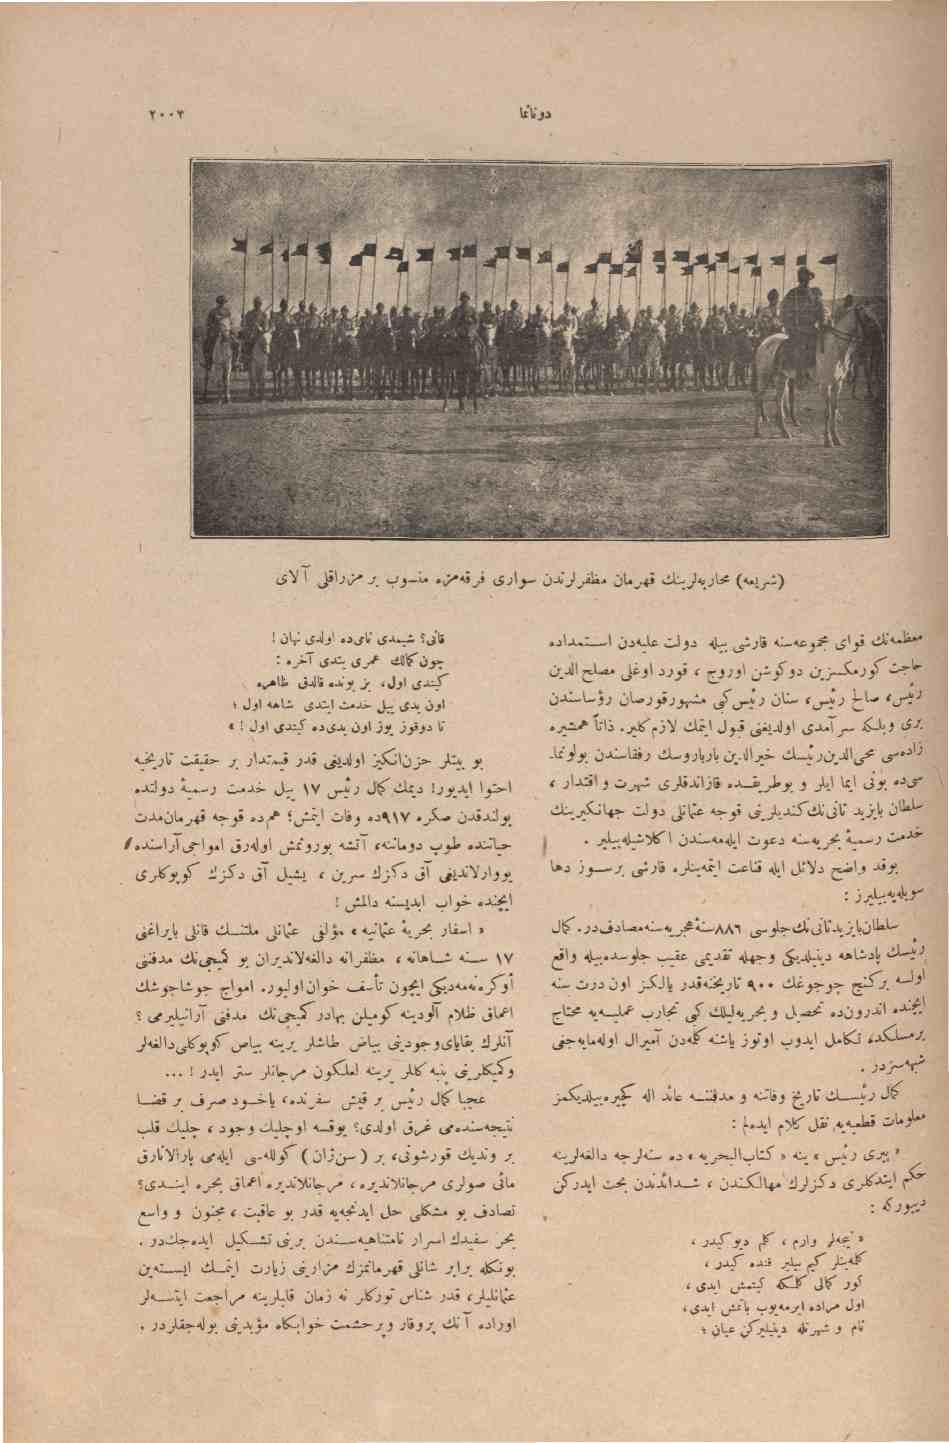 دونانما
٢٠٠٣
(شریعه) محاربه‌لرینك قهرمان مظفرلرندن سواری فرقه‌مزه منسوب بر مزراقلی آلای
معظمه‌نك قوای مجموعه‌سنه قارشی بیله دولت علیه‌دن استمداده
حاجت كورمكسزین دوكوشن اوروج ، قورد اوغلی مصلح الدین
رئیس، صالح رئیس، سنان رئیس كبی مشهور قورصان رؤساسندن
بری وبلكه سر آمدی اولدیغنی قبول ایتمك لازم كلیر. ذاتاً همشیره
زاده‌سی محی‌الدین رئیسك خیرالدین بارباروسك رفقاسندن بولونما‌
سی‌ده بونی ایما ایلر و بوطریقده قازاندقلری شهرت و اقتدار ،
سلطان بایزید ثانی‌نك كندیلرینی قوجه عثمانلی دولت جهانكیرینك
خدمت رسمیهٔ بحریه‌سنه دعوت ایله‌مه‌سندن اكلاشیله‌بیلیر .
بوقدر واضح دلائل ایله قناعت ایتمه‌ینلره قارشی برسوز دها
سویله‌یه‌بیلیرز :
سلطان بایزید ثانی‌نك جلوسی ٨٨٦ سنهٔ هجریه‌سنه مصادف‌در. كمال
رئیسك پادشاهه دینیلدیكی وجهله تقدیمی عقیب جلوسده‌بیله واقع
اولسه بركنج چوجوغك ٩٠٠ تاریخنه‌قدر یالكز اون درت سنه
ایچنده اندرون‌ده تحصیل و بحریه‌لیلك كبی تجارب عملیه‌یه محتاج
برمسلكده تكامل ایدوب اوتوز یاشنه كلمه‌دن آمیرال اوله‌مایه‌جغی
شبهه‌سزدر .
كمال رئیسك تاریخ وفاتنه و مدفننه عائد اله كچیره‌بیلدیكمز
معلومات قطعیه‌یه نقل كلام ایده‌لم :
« پیری رئیس » ینه « كتاب‌البحریه » ده سنه‌لرجه دالغه‌لرینه
حكم ایتدكلری دكزلرك مهالكندن ، شدائدندن بحث ایدركن
دییوركه :
« نیجه‌لر وارم ، كلم دیو كیدر ،
كلمه‌ینلر كیم بیلیر قنده كیدر ،
كور كمالی كلمكه كیتمش ایدی ،
اول مراده ایرمه‌یوب باتمش ایدی،
نام و شهرتله دینیلیركن عیان ؛
قانی؟ شیمدی نامی‌ده اولدی نهان !
چون كمالك عمری یتدی آخره :
كیتدی اول، بز بونده قالدق ظاهره
اون یدی ییل خدمت ایتدی شاهه اول ؛
تا دوقوز یوز اون یدی‌ده كیتدی اول ! »
بو بیتلر حزن‌انكیز اولدیغی قدر قیمتدار بر حقیقت تاریخیه
احتوا ایدیور! دیمك كمال رئیس ١٧ ییل خدمت رسمیهٔ دولتده
بولندقدن صكره ٩١٧ده وفات ایتمش؛ هم‌ده قوجه قهرمان مدت
حیاتنده طوپ دوماننه، آتشه بورونمش اوله‌رق امواجی آراسنده
یووارلاندیغی آق دكزك سرین ، یشیل آق دكزك كوپوكلری
ایچنده خواب ابدیسنه دالمش !
« اسفار بحریهٔ عثمانیه » مؤلفی عثمانلی ملتنك قانلی بایراغنی
١٧ سنه شاهانه ، مظفرانه دالغه‌لاندیران بو كمیجی‌نك مدفننی
اوكره‌نه‌مه‌دیكی ایچون تأسف خوان اولیور. امواج جوشاجوشك
اعماق ظلام آلودینه كومیلن بهادر كمیجی‌نك مدفنی آرانیلیرمی ؟
آنلرك بقایای وجودینی بیاض طاشلر یرینه بیاض كوپوكلی دالغه‌لر
وكمیكلرینی پنبه كللر یرینه لعلكون مرجانلر ستر ایدر ! ...
عجبا كمال رئیس بر قیش سفرنده، یاخود صرف بر قضا
نتیجه‌سنده‌می غرق اولدی؟ یوقسه اوچلیك وجود ، چلیك قلب
بر وندیك قورشونی، بر ( سن‌ژان ) كولله‌سی ایله‌می پارالانارق
مائی صولری مرجانلاندیره ، مرجانلاندیره اعماق بحره ایندی؟
تصادف بو مشكلی حل ایدنجه‌یه قدر بو عاقبت ، مجنون و واسع
بحر سفیدك اسرار نامتناهیه‌سندن برینی تشكیل ایده‌جك‌در .
بونكله برابر شانلی قهرمانمزك مزارینی زیارت ایتمك ایسته‌ین
عثمانلیلر، قدر شناس توركلر نه زمان قلبلرینه مراجعت ایتسه‌لر
اوراده آنك پروقار وپرحشمت خوابكاه مؤبدینی بوله‌جقلردر .